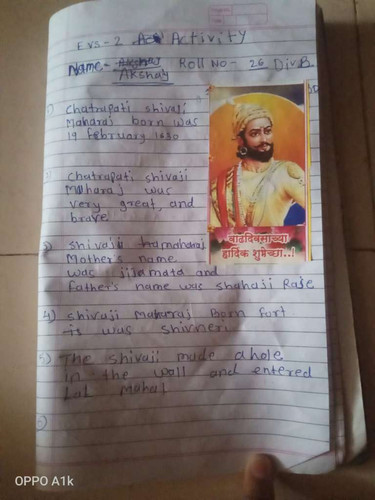 EVS-2 Activity
Name- Akshay Roll No- 26 Div.B
1) Chatrapati shivaji
Maharaj born was
19 february 1630
Chatrapati shivaji
Maharaj was
very great, and
brave
वाढदिवसाच्या
हार्दिक शुभेच्छा..!
3) shivaji maharaj
Mother's name
was jijamata and
father's name was shahaji Raje
4) shivaji Maharaj Born fort
was shivneri
5) The shivaji made a hole
in the wall and entered
Lal Mahal
OPPO A1k